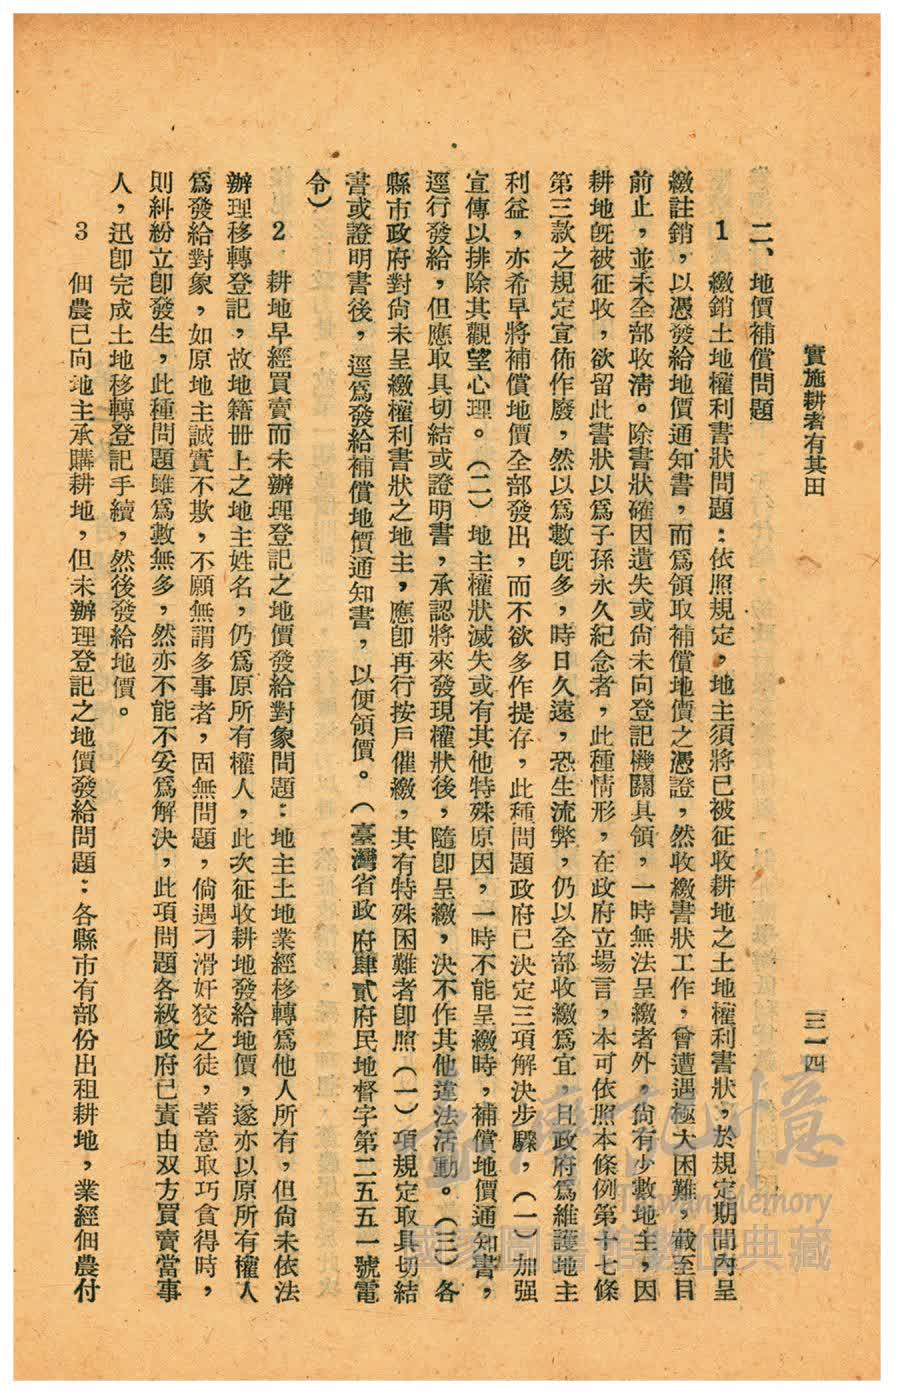 實施耕者有其田
三一四
二、地價補償問題
1 繳銷土地權利書狀問題：依照規定，地主須將已被征收耕地之土地權利書狀，於規定期間內呈
繳註銷，以憑發給地價通知書，而爲領取補償地價之憑證，然收繳書狀工作，曾遭遇極大困難，截至目
前止，並未全部收清。除書狀確因遺失或尙未向登記機關具領，一時無法呈繳者外，尙有少數地主，因
耕地旣被征收，欲留此書狀以爲子孫永久紀念者，此種情形，在政府立場言，本可依照本條例第十七條
第三款之規定宣佈作廢，然以爲數旣多，時日久遠，恐生流弊，仍以全部收繳爲宜，且政府爲維護地主
利益，亦希早將補償地價全部發出，而不欲多作提存，此種問題政府已決定三項解決步驟，（一）加强
宣傳以排除其觀望心理。（二）地主權狀滅失或有其他特殊原因，一時不能呈繳時，補償地價通知書，
逕行發給，但應取具切結或證明書，承認將來發現權狀後，隨卽呈繳，決不作其他違法活動。（三）各
縣市政府對尙未呈繳權利書狀之地主，應卽再行按戶催繳，其有特殊困難者卽照（一）項規定取具切結
書或證明書後，逕爲發給補償地價通知書，以便領價。（臺灣省政府肆貳府民地督字第二五五一號電
令）
2 耕地早經買賣而未辦理登記之地價發給對象問題：地主土地業經移轉爲他人所有，但尙未依法
辦理移轉登記，故地籍册上之地主姓名，仍爲原所有權人，此次征收耕地發給地價，遂亦以原所有權人
爲發給對象，如原地主誠實不欺，不願無謂多事者，固無問題，倘遇刁滑奸狡之徒，蓄意取巧貪得時，
則糾紛立卽發生，此種問題雖爲數無多，然亦不能不妥爲解決，此項問題各級政府已責由双方買賣當事
人，迅卽完成土地移轉登記手續，然後發給地價。
3 佃農已向地主承購耕地，但未辦理登記之地價發給問題：各縣市有部份出租耕地，業經佃農付
臺灣記憶
Taiwan Memory
國家圖書館數位典藏